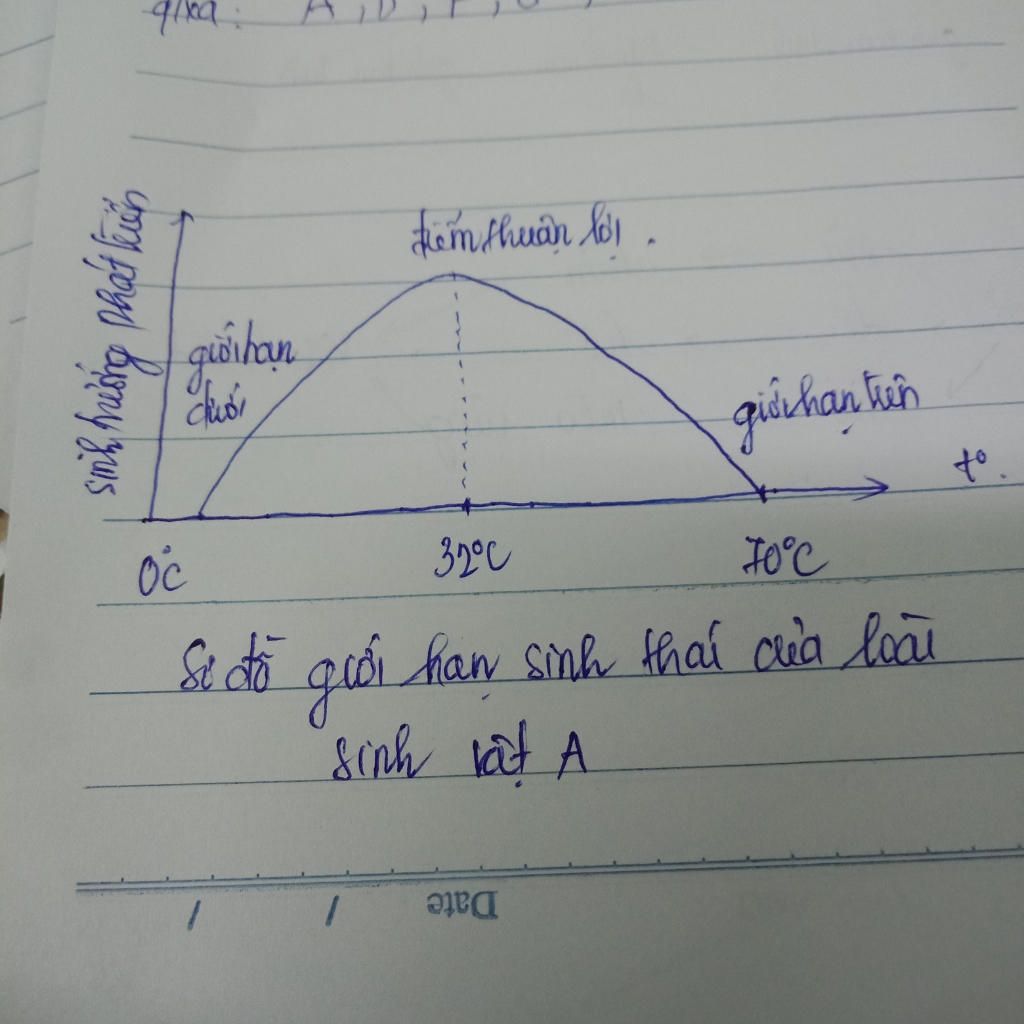 q/xa: A, D, F,
sinh trưởng phát triển
điểm thuận lợi.
giới hạn
dưới
giới hạn trên
t°.
0°C
32°C
70°C
Sơ đồ giới hạn sinh thái của loài
sinh vật A
Date